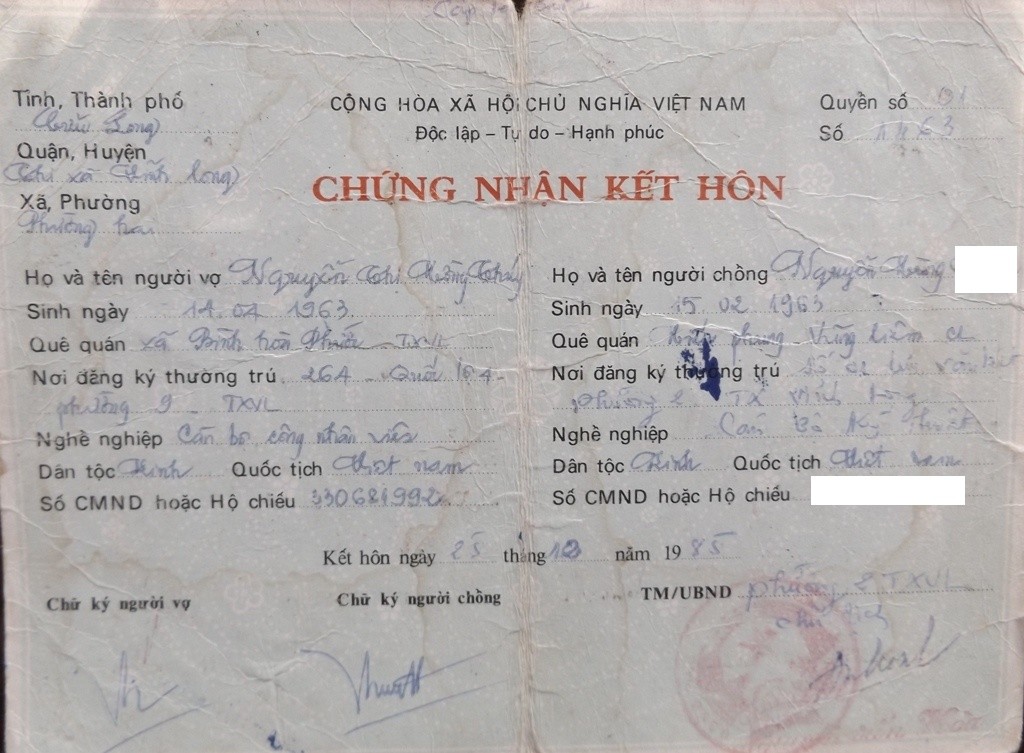 Tỉnh, Thành phố
Cửu Long
Quận, Huyện
Thị xã Vĩnh Long
Xã, Phường
Phường hai
CỘNG HÒA XÃ HỘI CHỦ NGHĨA VIỆT NAM
Độc lập – Tự do – Hạnh phúc
Quyển số 01
Số 63
CHỨNG NHẬN KẾT HÔN
Họ và tên người vợ Nguyễn Thị Hường Thủy
Sinh ngày 14.04 1963.
Quê quán xã Bình hoà Phước TXVL
Nơi đăng ký thường trú 26A - Quốc lộ 4 -
phường 9 - TXVL
Nghề nghiệp Cán bộ công nhân viên
Dân tộc Kinh Quốc tịch Việt nam
Số CMND hoặc Hộ chiếu 330681992
Họ và tên người chồng Nguyễn
Sinh ngày 15 02 1963
Quê quán Hiếu phụng - Vũng Liêm CL
Nơi đăng ký thường trú Số
phường 2 - TX Vĩnh Long
Nghề nghiệp Cán bộ Kỹ thuật
Dân tộc Kinh Quốc tịch Việt nam
Số CMND hoặc Hộ chiếu
Kết hôn ngày 25 tháng 12 năm 1985
Chữ ký người vợ
Chữ ký người chồng
TM/UBND phường 2 TXVL
chủ tịch